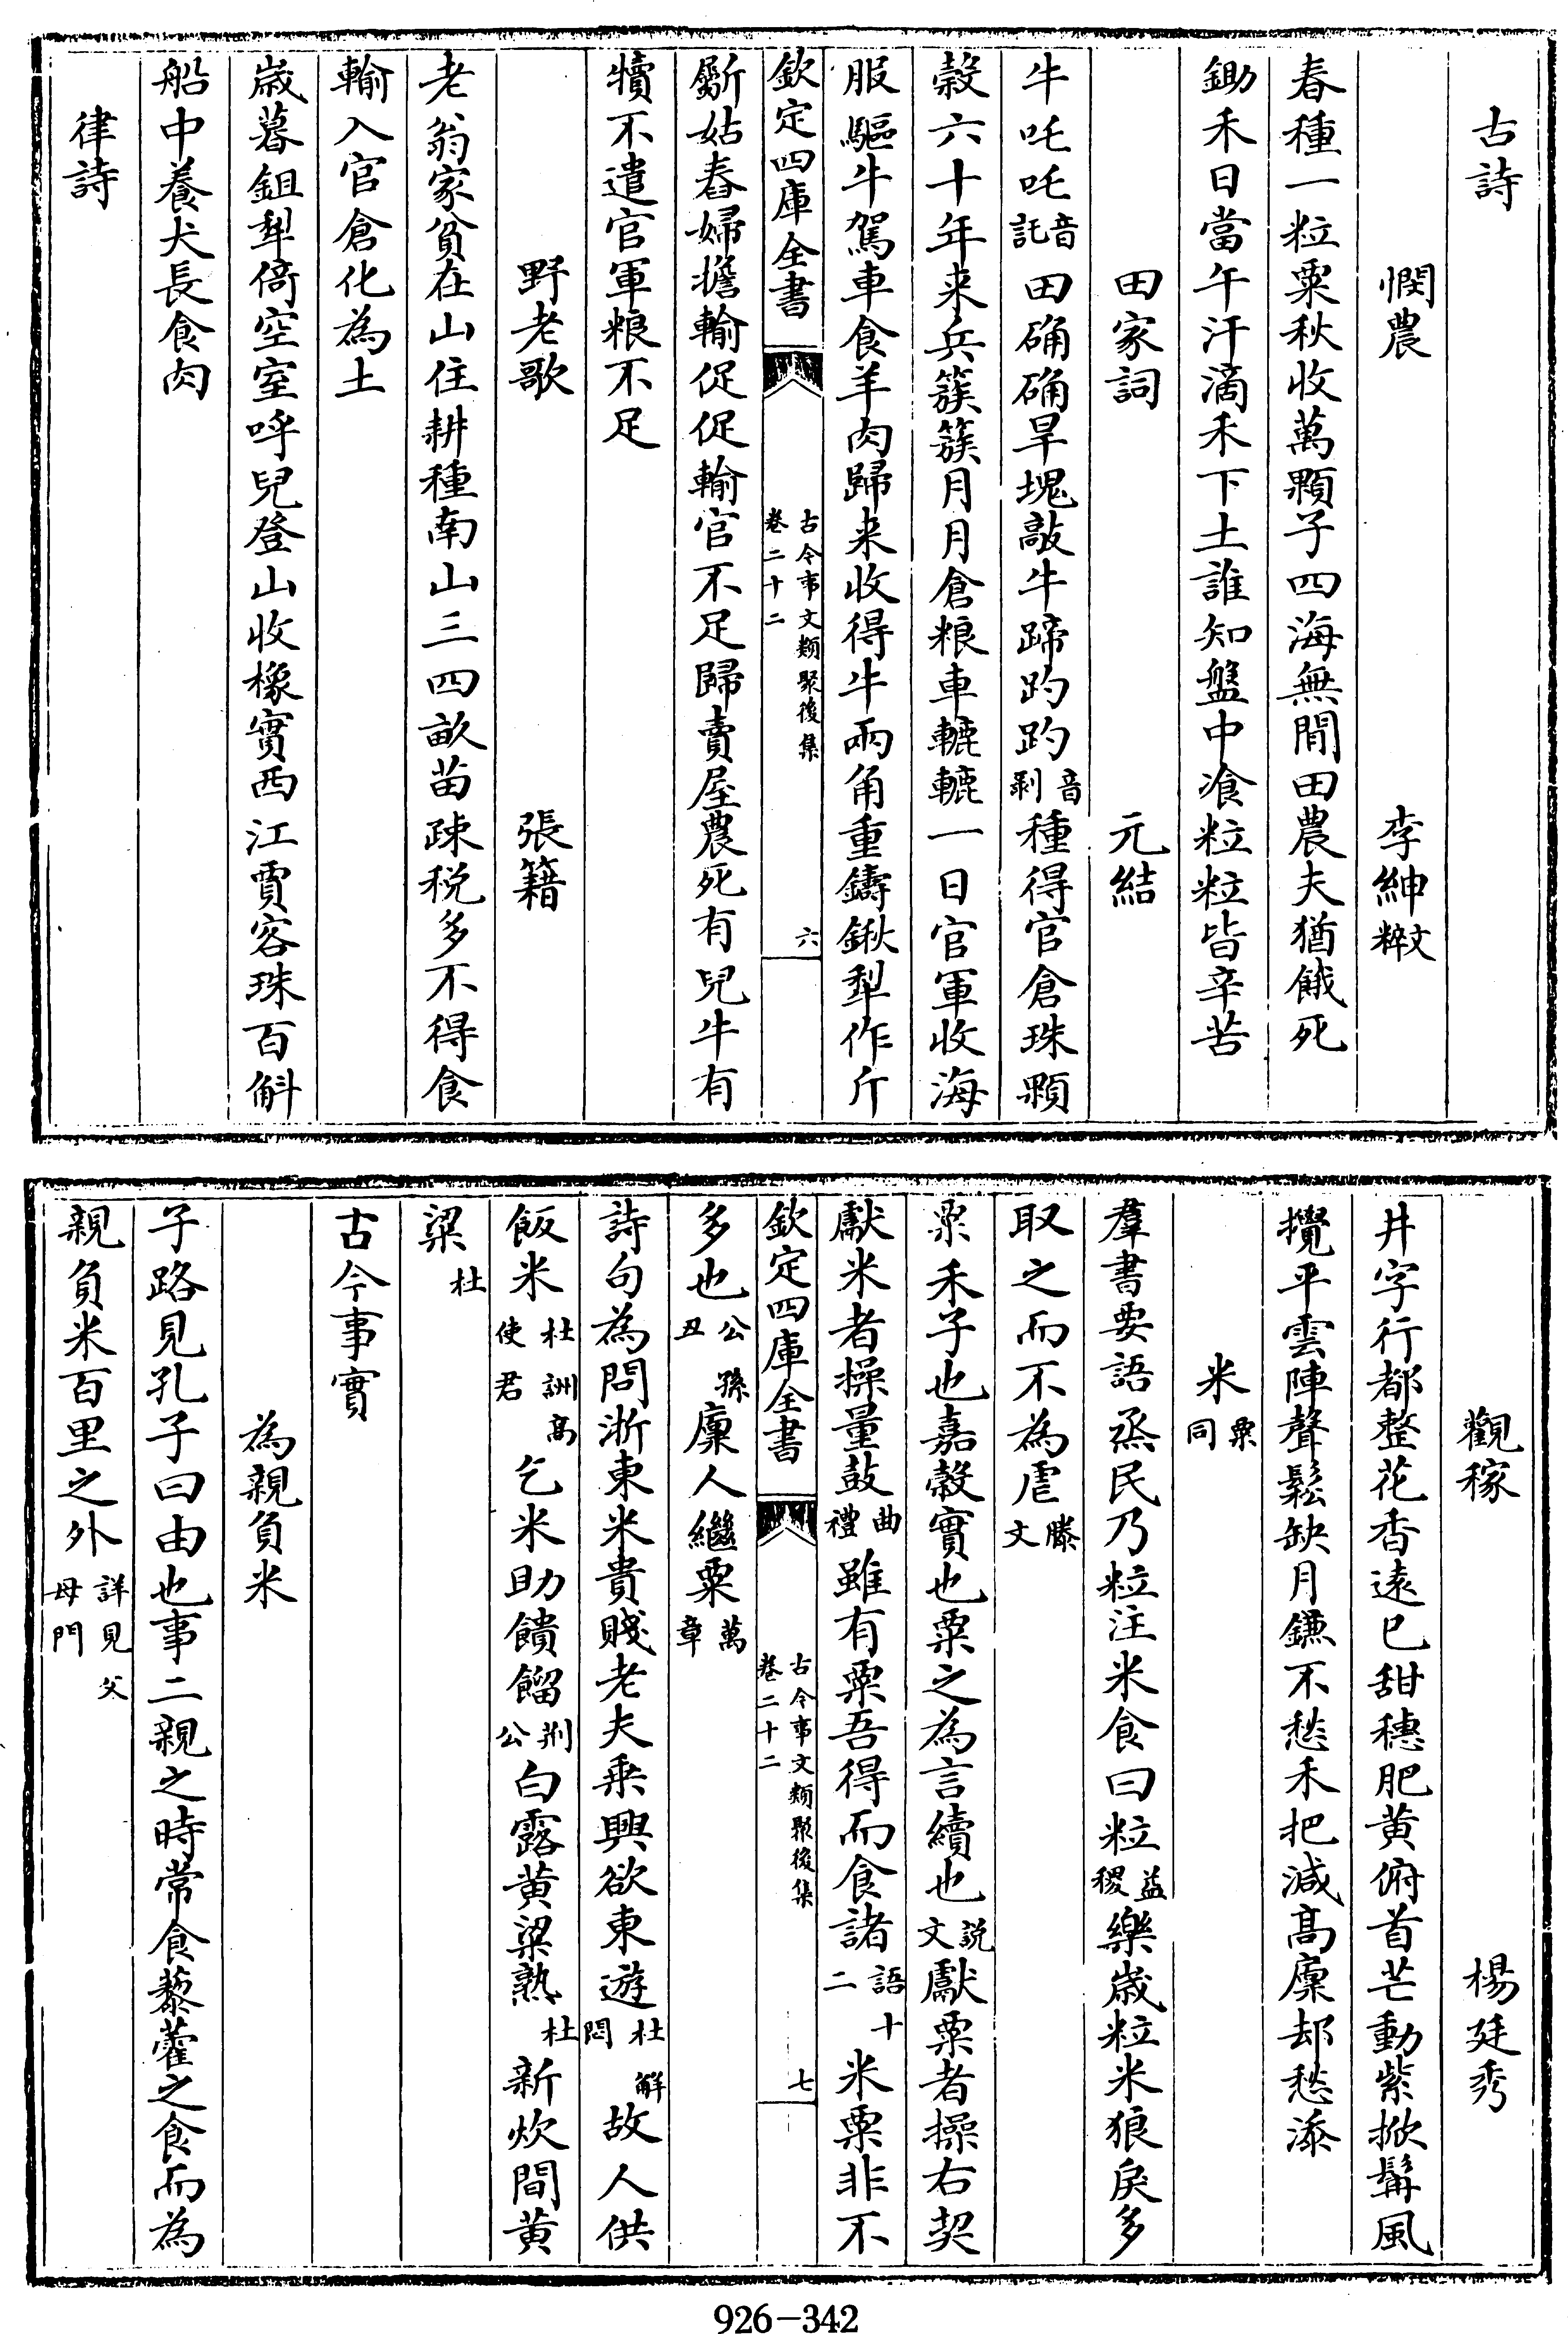 古詩
憫農 李紳粹文
春種一粒粟秋收萬顆子四海無閒田農夫猶餓死
鋤禾日當午汗滴禾下土誰知盤中飡粒粒皆辛苦
田家詞 元結
牛吒吒音託田确确旱塊敲牛蹄趵趵音剥種得官倉珠顆
榖六十年来兵簇簇月月倉粮車轆轆一日官軍收海
服驅牛駕車食羊肉歸来收得牛兩角重鑄鍬犁作斤
欽定四庫全書 古今事文類聚後集 卷二十二 六
斸姑舂婦擔輸促促輸官不足歸賣屋農死有兒牛有
犢不遣官軍粮不足
野老歌 張籍
老翁家貧在山住耕種南山三四畝苗疎税多不得食
輸入官倉化為土
嵗暮鉏犁倚空室呼兒登山收橡實西江賈客珠百斛
船中養犬長食肉
律詩
觀稼 楊廷秀
井字行都整花香遠已甜穗肥黄俯首芒動紫掀髯風
攪平雲陣聲鬆缺月鎌不愁禾把減髙廩却愁添
米粟同
羣書要語烝民乃粒注米食曰粒益稷樂嵗粒米狼戾多
取之而不為虐滕文
粟禾子也嘉榖實也粟之為言續也説文獻粟者操右契
獻米者操量鼓曲禮雖有粟吾得而食諸語十二米粟非不
欽定四庫全書 古今事文類聚後集 卷二十二 七
多也公孫丑廩人繼粟萬章
詩句為問浙東米貴賤老夫乘興欲東遊杜解悶故人供
飯米杜詶髙使君乞米助饋餾荆公白露黄粱熟杜新炊間黄
粱杜
古今事實
為親負米
子路見孔子曰由也事二親之時常食藜藿之食而為
親負米百里之外詳見父母門
926-342